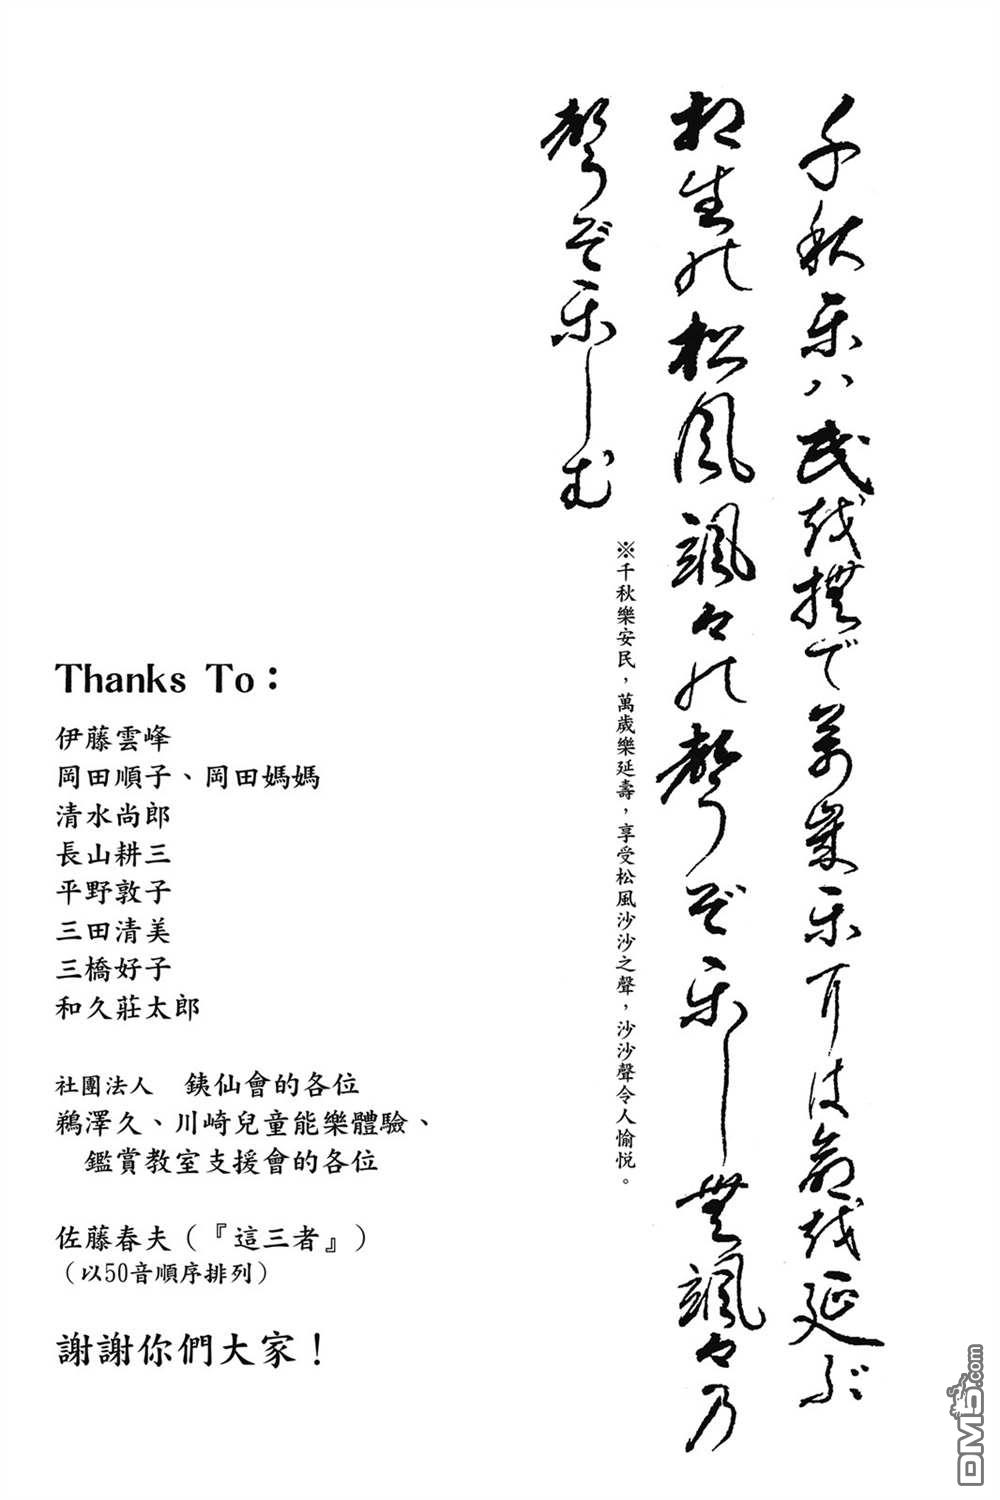 千秋楽ハ民越撫で萬歳楽耳は命越延ぶ
相生能松風颯々能聲ぞ楽し無颯々乃
聲ぞ楽しむ
※千秋樂安民，萬歲樂延壽，享受松風沙沙之聲，沙沙聲令人愉悅。
Thanks To：
伊藤雲峰
岡田順子、岡田媽媽
清水尚郎
長山耕三
平野敦子
三田清美
三橋好子
和久莊太郎
社團法人　銕仙會的各位
鵜澤久、川崎兒童能樂體驗、
鑑賞教室支援會的各位
佐藤春夫（『這三者』）
（以50音順序排列）
謝謝你們大家！
DM5.com